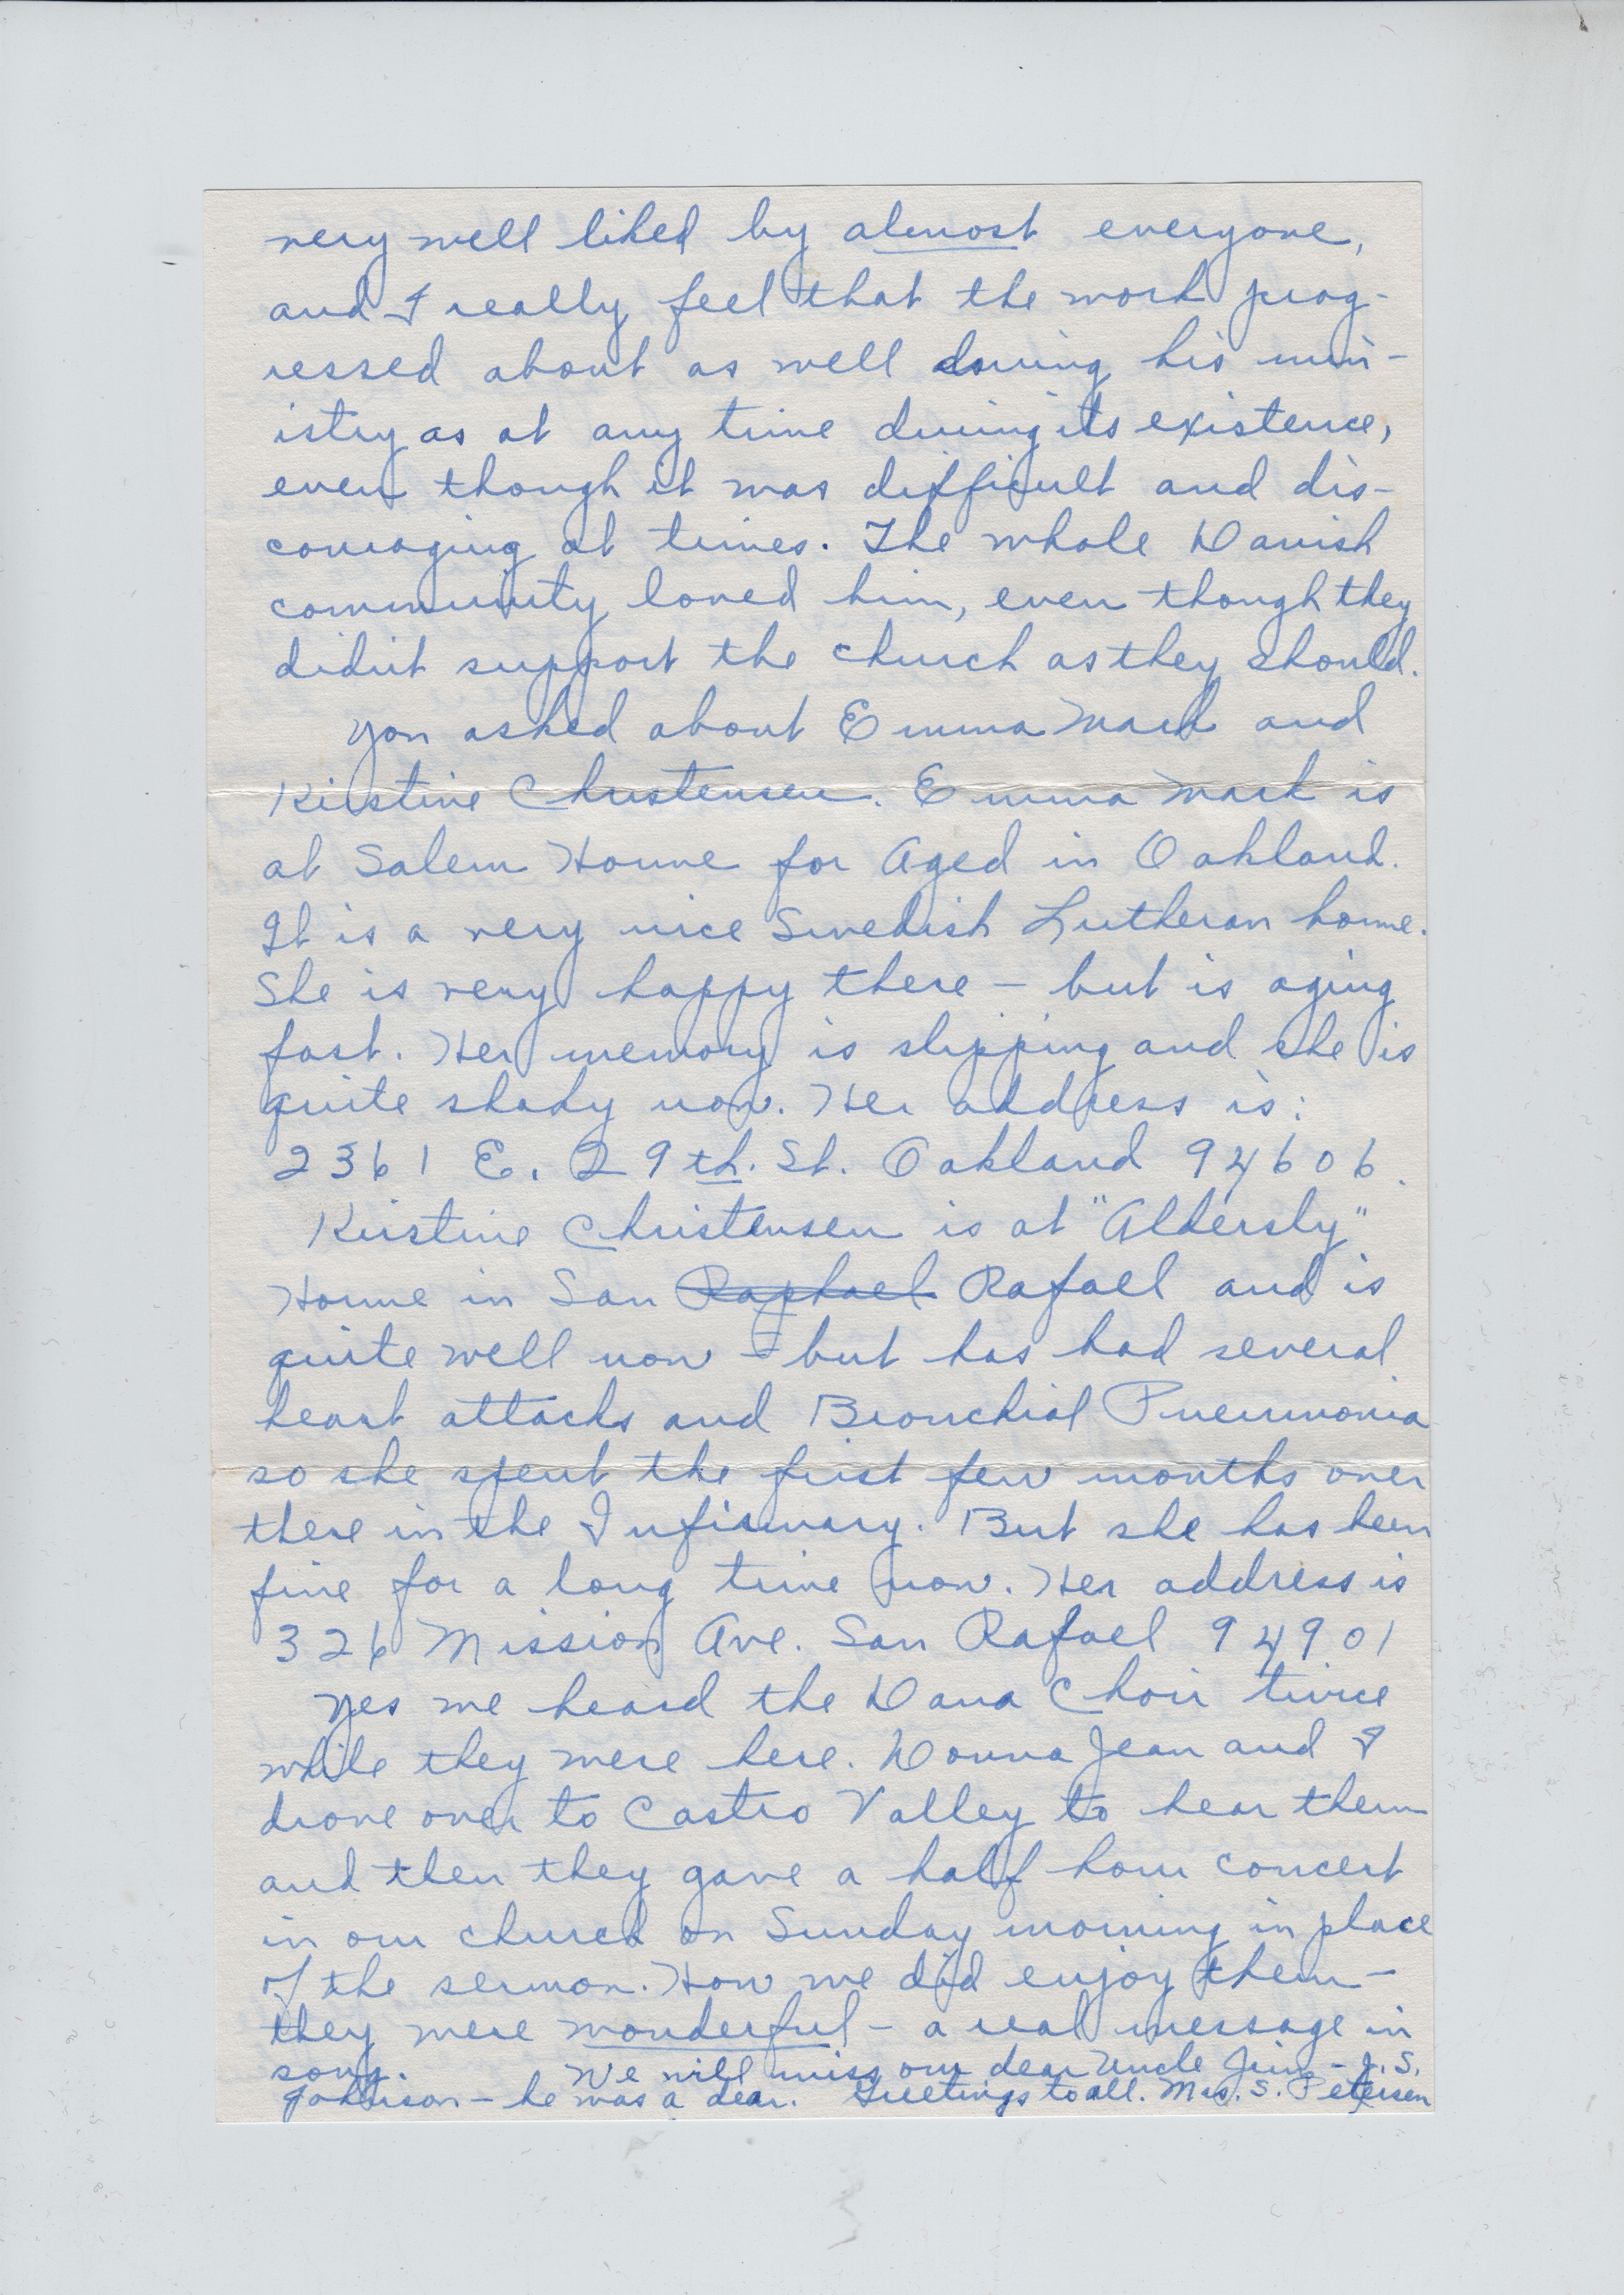 very well liked by almost everyone,
and I really feel that the work prog-
ressed about as well during his min-
istry as at any time during its existence,
even though it was difficult and dis-
couraging at times. The whole Danish
community loved him, even though they
didn't support the church as they should.
You asked about Emma Mark and
Kirstine Christensen. Emma Mark is
at Salem Home for Aged in Oakland.
It is a very nice Swedish Lutheran home.
She is very happy there – but is aging
fast. Her memory is slipping and she is
quite shaky now. Her address is:
2361 E. 29th. St. Oakland 94606.
Kirstine Christensen is at "Aldersly"
Home in San Raphael Rafael and is
quite well now – but has had several
heart attacks and Bronchial Pneumonia
so she spent the first few months over
there in the Infirmary. But she has been
fine for a long time now. Her address is
326 Mission Ave. San Rafael 94901
Yes we heard the Dana Choir twice
while they were here. Donna Jean and I
drove over to Castro Valley to hear them
and then they gave a half hour concert
in our church on Sunday morning in place
of the sermon. How we did enjoy them –
they were wonderful – a real message in
song. We will miss our dear Uncle Jim – J. S.
Johnson – he was a dear. Greetings to all. Mrs. S. Petersen